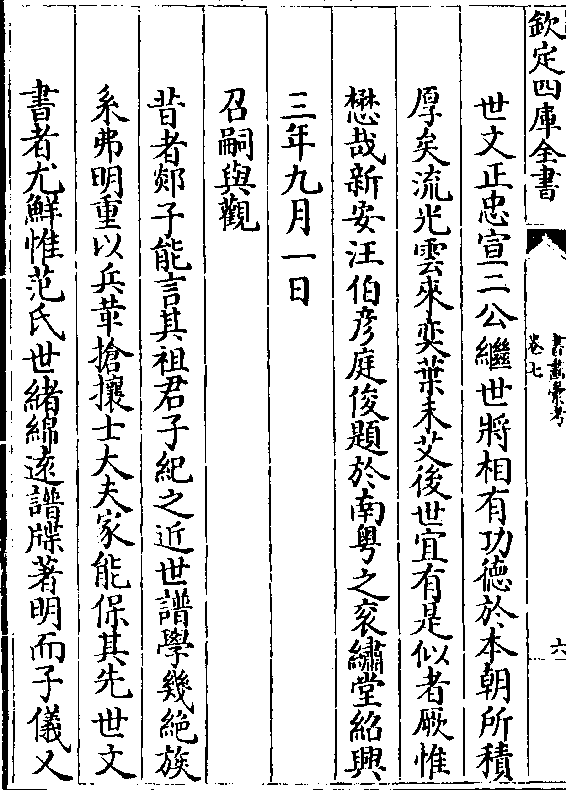 欽定四庫全書
書畫彙考
卷七
六
世文正忠宣二公繼世將相有功德於本朝所積
厚矣流光雲來奕葉未艾後世宜有是似者厥惟
懋哉新安汪伯彦庭俊題於南粤之衮繡堂紹興
三年九月一日
召嗣與觀
昔者郯子能言其祖君子紀之近世譜學幾絶族
系弗明重以兵革搶攘士大夫家能保其先世文
書者尤鮮惟范氏世緒綿遠譜牒著明而子儀又